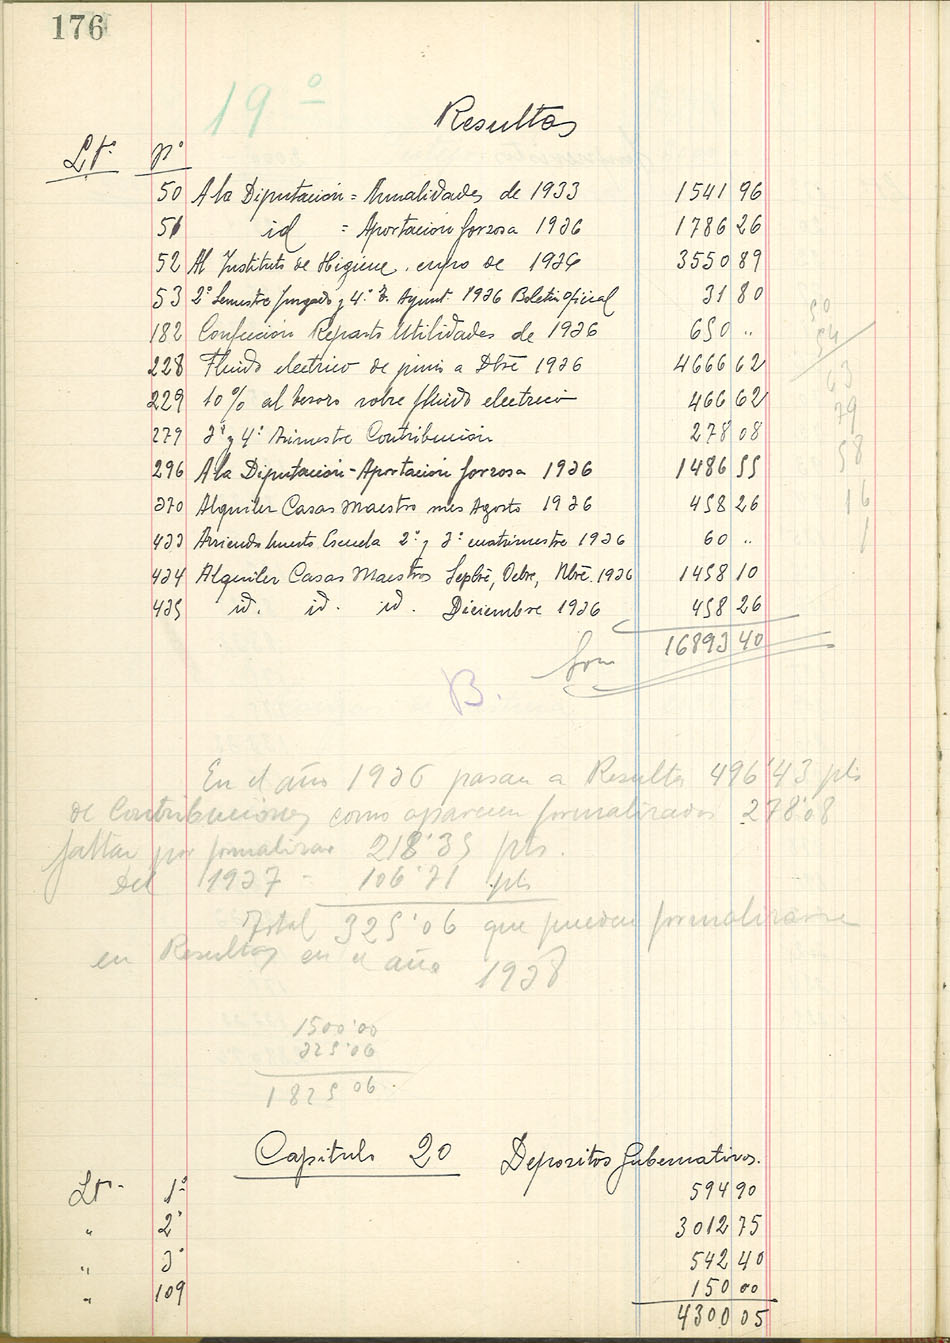 176
19º
Resultas
Lº. nº
50 A la Diputación = Anualidades de 1933 1541 96
51 id = Aportación forzosa 1936 1786 26
52 Al Instituto de Higiene, de 1936 3550 89
53 2º Semestre Juzgado y 4º T. Ayunt. 1936 Boletin oficial 31 80
182 Confección Reparto Utilidades de 1936 650 "
228 Fluido electrico de junio a Dbre 1936 4666 62
229 10% al tesoro sobre fluido electrico 466 62
279 3º y 4º trimestre Contribución 278 08
296 A la Diputación - Aportación forzosa 1936 1486 55
370 Alquiler Casas Maestro mes Agosto 1936 458 26
433 Arriendo huerto Escuela 2º y 3º cuatrimestre 1936 60 "
434 Alquiler Casas Maestros Sepbre, Octbre, Nbre. 1936 1458 10
435 id. id. id. Diciembre 1936 458 26
16893 40
50
54
63
79
58
16
1
B.
En el año 1936 pasan a Resultas 496'43 pts
de Contribuciones como aparecen formalizados 278'08
faltan por formalizar 218'35 pts.
Del 1937 - 106'71 pts
Total 325'06 que pueden formalizarse
en Resultas en el año 1938
1500'00
325'06
1825 06.
Capitulo 20 Depositos Gubernativos.
Lº. 1º 594 90
" 2º 3012 75
" 3º 542 40
" 109 150 00
4300 05